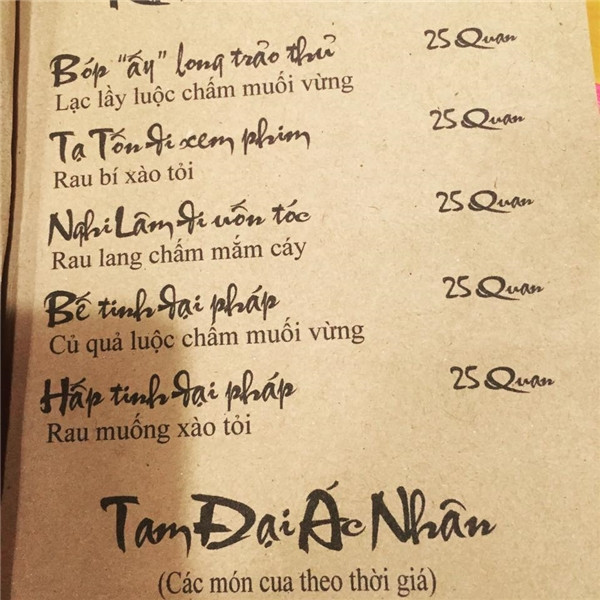 Bóp "ấy" long trảo thủ 25 Quan
Lạc lầy luộc chấm muối vừng
Tạ Tốn đi xem phim 25 Quan
Rau bí xào tỏi
Nghi Lâm đi uốn tóc 25 Quan
Rau lang chấm mắm cáy
Bế tinh đại pháp 25 Quan
Củ quả luộc chấm muối vừng
Hấp tinh đại pháp 25 Quan
Rau muống xào tỏi
Tam Đại Ác Nhân
(Các món cua theo thời giá)